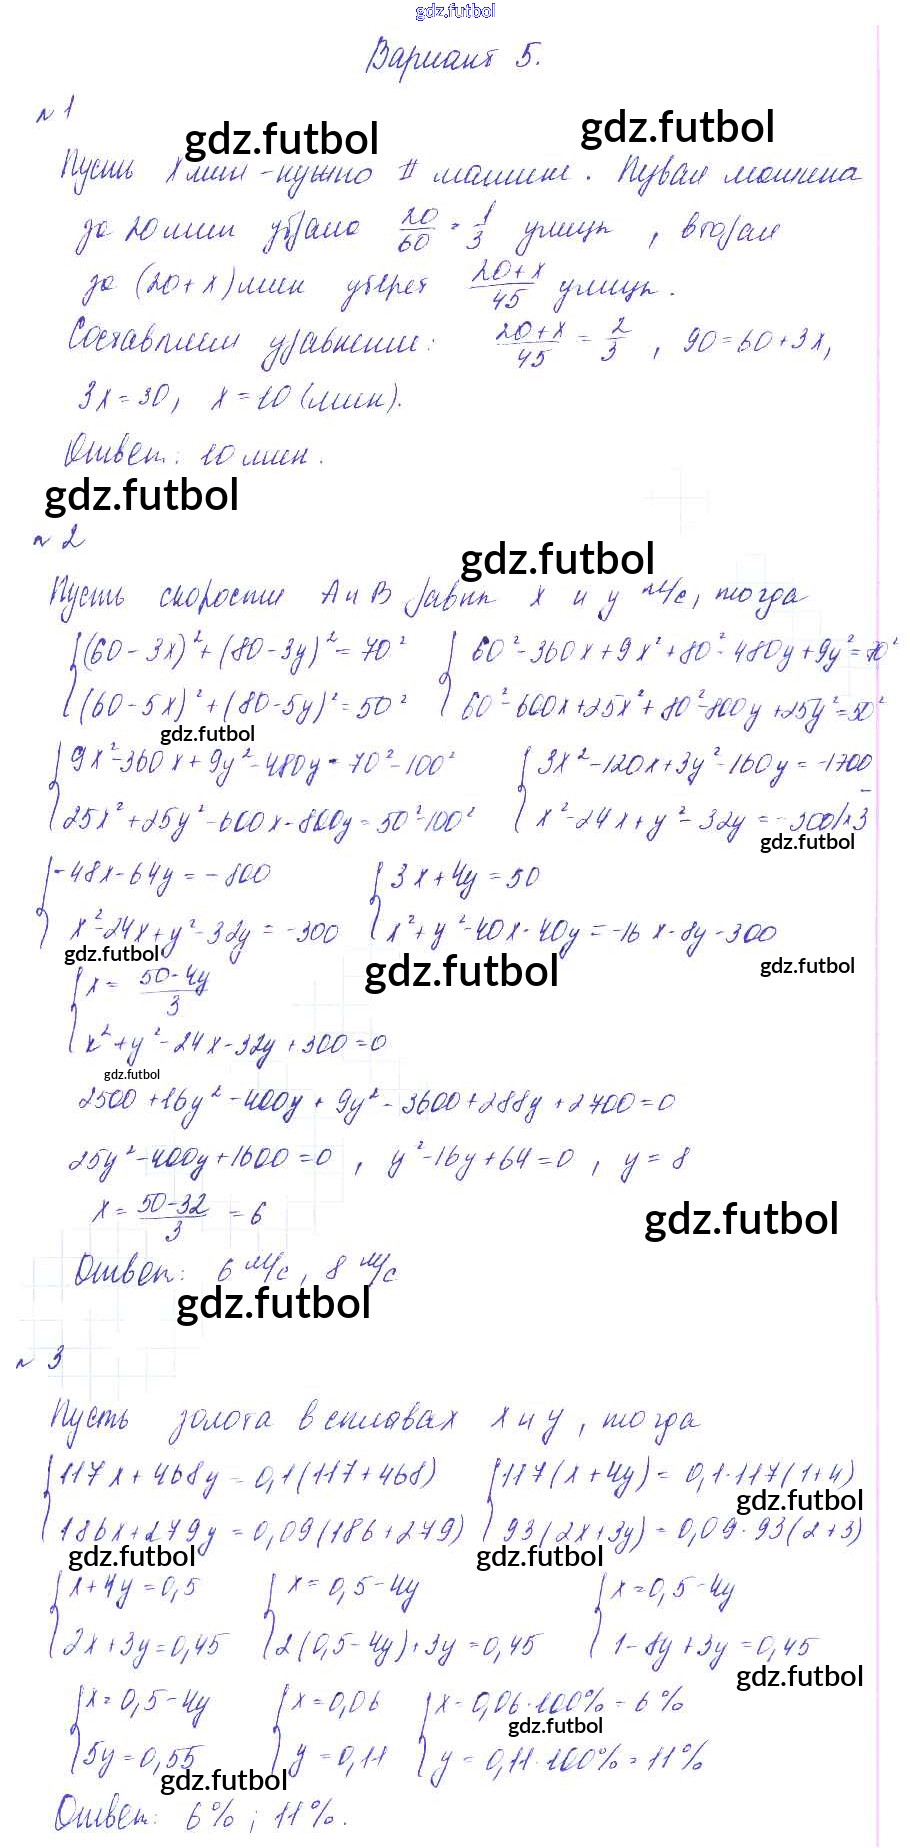 gdz.futbol
Вариант 5.
№ 1
gdz.futbol gdz.futbol
Пусть x мин - нужно II машине. Первая машина
за 20 мин убрала 20/60 = 1/3 улицы, вторая
за (20 + x) мин уберет 20+x/45 улицы.
Составляем уравнение: 20+x/45 = 2/3, 90 = 60 + 3x,
3x = 30, x = 10 (мин).
Ответ: 10 мин.
gdz.futbol
№ 2
gdz.futbol
Пусть скорости A и B равны x и y м/с, тогда
{(60 - 3x)² + (80 - 3y)² = 70² {60² - 360x + 9x² + 80² - 480y + 9y² = 70²
(60 - 5x)² + (80 - 5y)² = 50² 60² - 600x + 25x² + 80² - 800y + 25y² = 50²
gdz.futbol
{9x² - 360x + 9y² - 480y = 70² - 100² {3x² - 120x + 3y² - 160y = -1700
25x² + 25y² - 600x - 800y = 50² - 100² x² - 24x + y² - 32y = -300 |×3
gdz.futbol
{-48x - 64y = -800 {3x + 4y = 50
x² - 24x + y² - 32y = -300 x² + y² - 40x - 40y = -16x - 8y - 300
gdz.futbol gdz.futbol gdz.futbol
{x = 50-4y/3
x² + y² - 24x - 32y + 300 = 0
gdz.futbol
2500 + 16y² - 400y + 9y² - 3600 + 288y + 2700 = 0
25y² - 400y + 1600 = 0, y² - 16y + 64 = 0, y = 8
x = 50-32/3 = 6
gdz.futbol
Ответ: 6 м/с, 8 м/с
gdz.futbol
№ 3
Пусть золота в сплавах x и y, тогда
{117x + 468y = 0,1(117 + 468) {117(x + 4y) = 0,1·117(1 + 4)
gdz.futbol
186x + 279y = 0,09(186 + 279) 93(2x + 3y) = 0,09·93(2 + 3)
gdz.futbol gdz.futbol
{x + 4y = 0,5 {x = 0,5 - 4y {x = 0,5 - 4y
2x + 3y = 0,45 2(0,5 - 4y) + 3y = 0,45 1 - 8y + 3y = 0,45
gdz.futbol
{x = 0,5 - 4y {x = 0,06 {x = 0,06·100% = 6%
gdz.futbol
5y = 0,55 y = 0,11 y = 0,11·100% = 11%
gdz.futbol
Ответ: 6%; 11%.